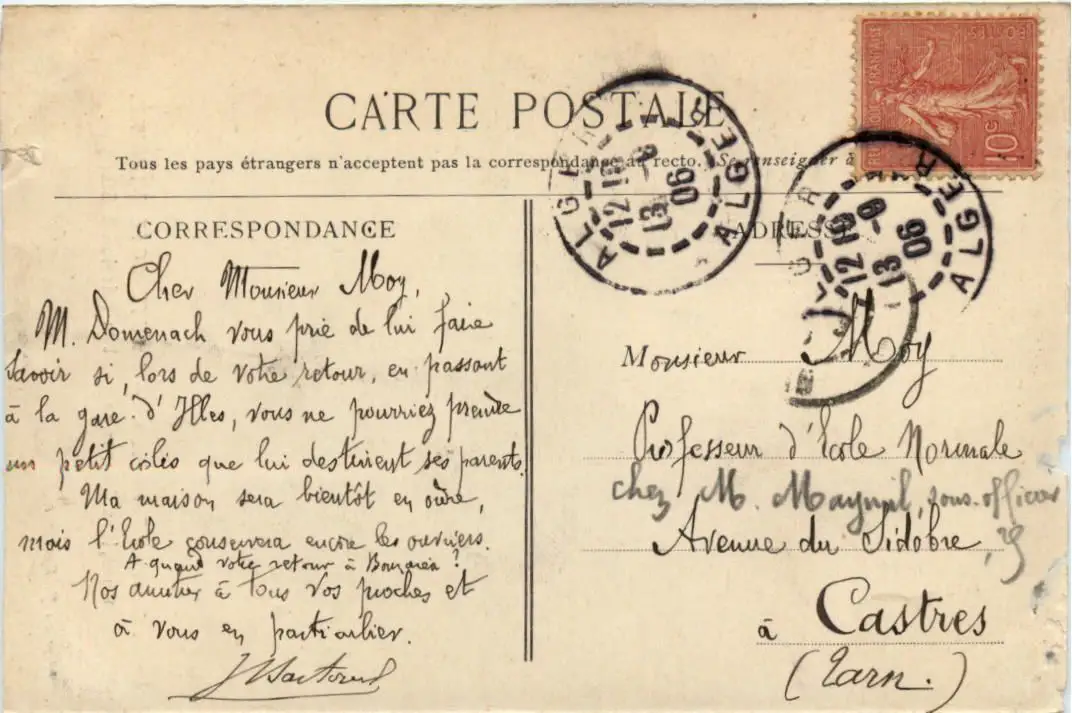 CARTE POSTALE
Tous les pays étrangers n'acceptent pas la correspondance au recto. (Se renseigner à
RÉPUBLIQUE FRANÇAISE
POSTES
10c
ALGER ALGER
12 10
13 -9
06
ALGER ALGER
12 10
13 -9
06
CORRESPONDANCE
Cher Monsieur Moy,
M. Domenach vous prie de lui faire
savoir si, lors de votre retour, en passant
à la gare d'Illes, vous ne pourriez prendre
un petit colis que lui destinent ses parents.
Ma maison sera bientôt en ordre,
mais l'Ecole conservera encore les ouvriers.
A quand votre retour à Bouzaréa ?
Nos amitiés à tous vos proches et
à vous en particulier.
ADRESSE
Monsieur Moy
Professeur d'Ecole Normale
chez M. Maynil, sous-officier
Avenue du Sidobre, 29
à Castres
(Tarn.)